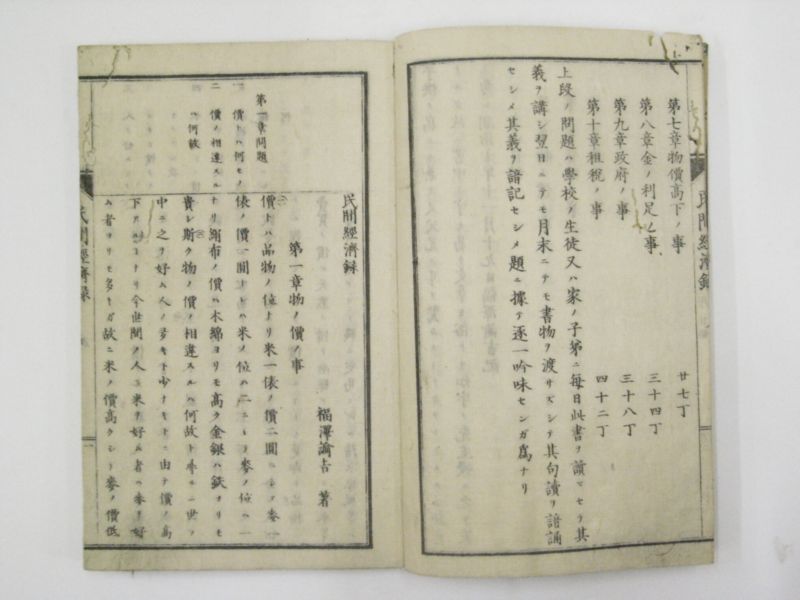 第七章物價高下ノ事 廿七丁
第八章金ノ利足ノ事 三十四丁
第九章政府ノ事 三十八丁
第十章租税ノ事 四十二丁
上段ノ問題ハ學校ノ生徒又ハ家ノ子弟ニ毎日此書ヲ讀マセテ其
義ヲ講シ翌日ニテモ月末ニテモ書物ヲ渡サズシテ其句讀ヲ諳誦
セシメ其義ヲ諳記セシメ題ニ據テ逐一吟味センガ爲ナリ
民間經濟録
民間經濟録
福澤諭吉 著
第一章物ノ價ノ事
第一章問題
一 價トハ何ゾヤ
二 價ノ相違スルハ何故
價トハ品物ノ位ナリ米一俵ノ價二圓ニシテ麥一
俵ノ價一圓ナレバ米ノ位ハ二ニシテ麥ノ位ハ一
ナリ絹布ノ價ハ木綿ヨリモ高ク金銀ハ鉄ヨリモ
貴シ斯ク物ノ價ノ相違スルハ何故ト尋ルニ世ノ
中ニ之ヲ好ム人ノ多キト少ナキトニ由テ價ノ高
下アルコトナリ今世間ノ人ニ米ヲ好ム者ハ麥ヲ好
ム者ヨリモ多キガ故ニ米ノ價高クシテ麥ノ價低
民間經濟録